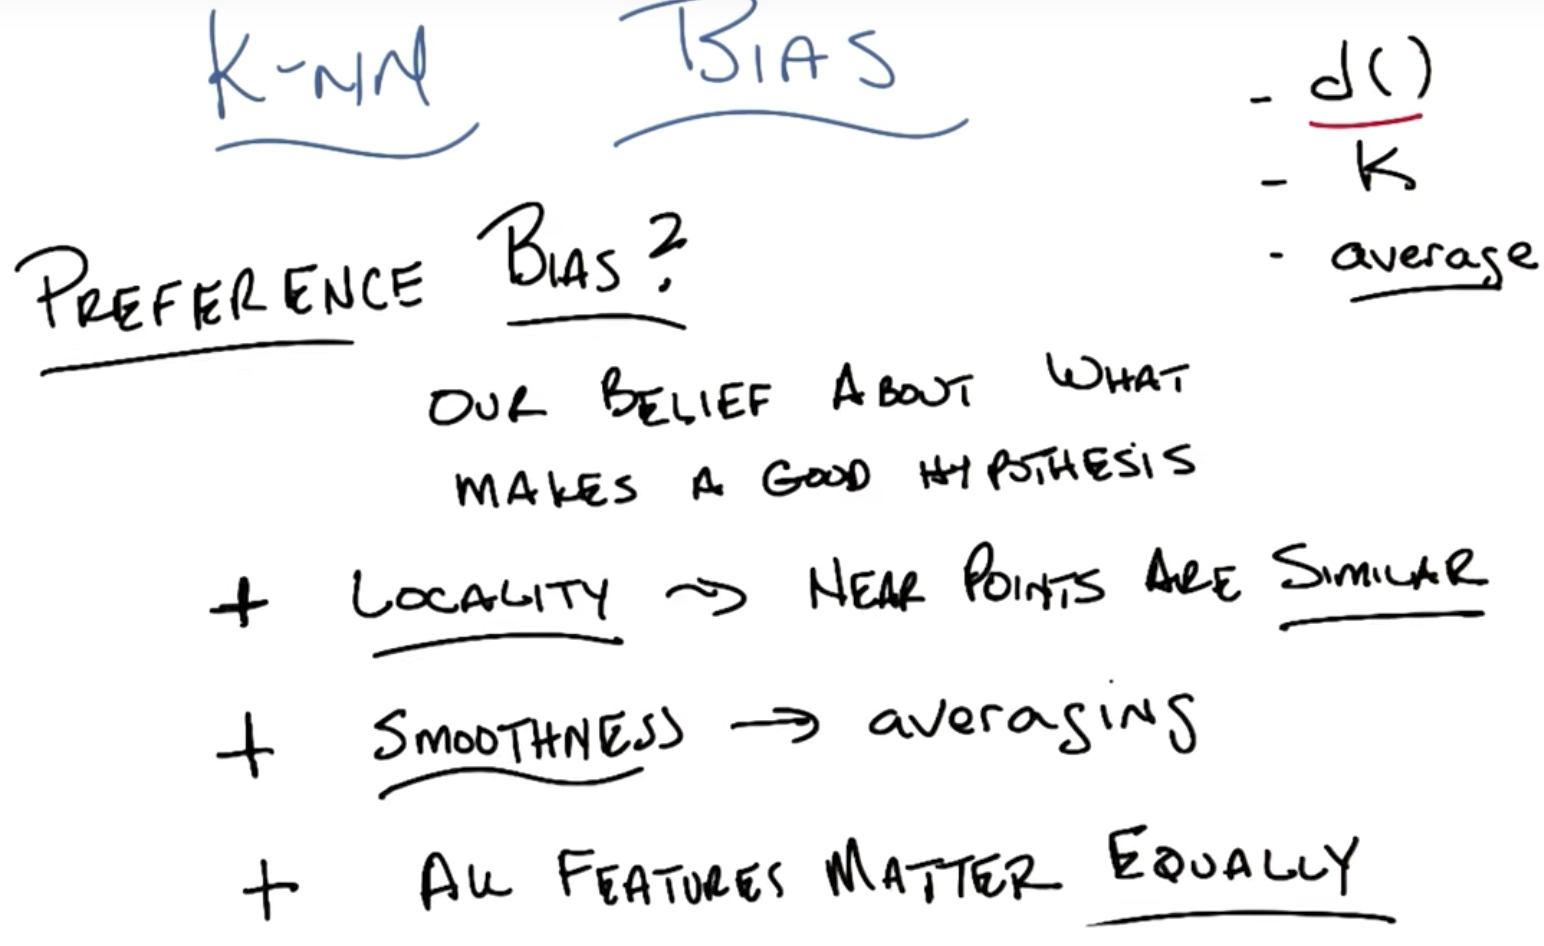 K-NN BIAS
- d()
- K
- average
PREFERENCE BIAS?
OUR BELIEF ABOUT WHAT
MAKES A GOOD HYPOTHESIS
+ LOCALITY → NEAR POINTS ARE SIMILAR
+ SMOOTHNESS → averaging
+ All FEATURES MATTER EQUALLY